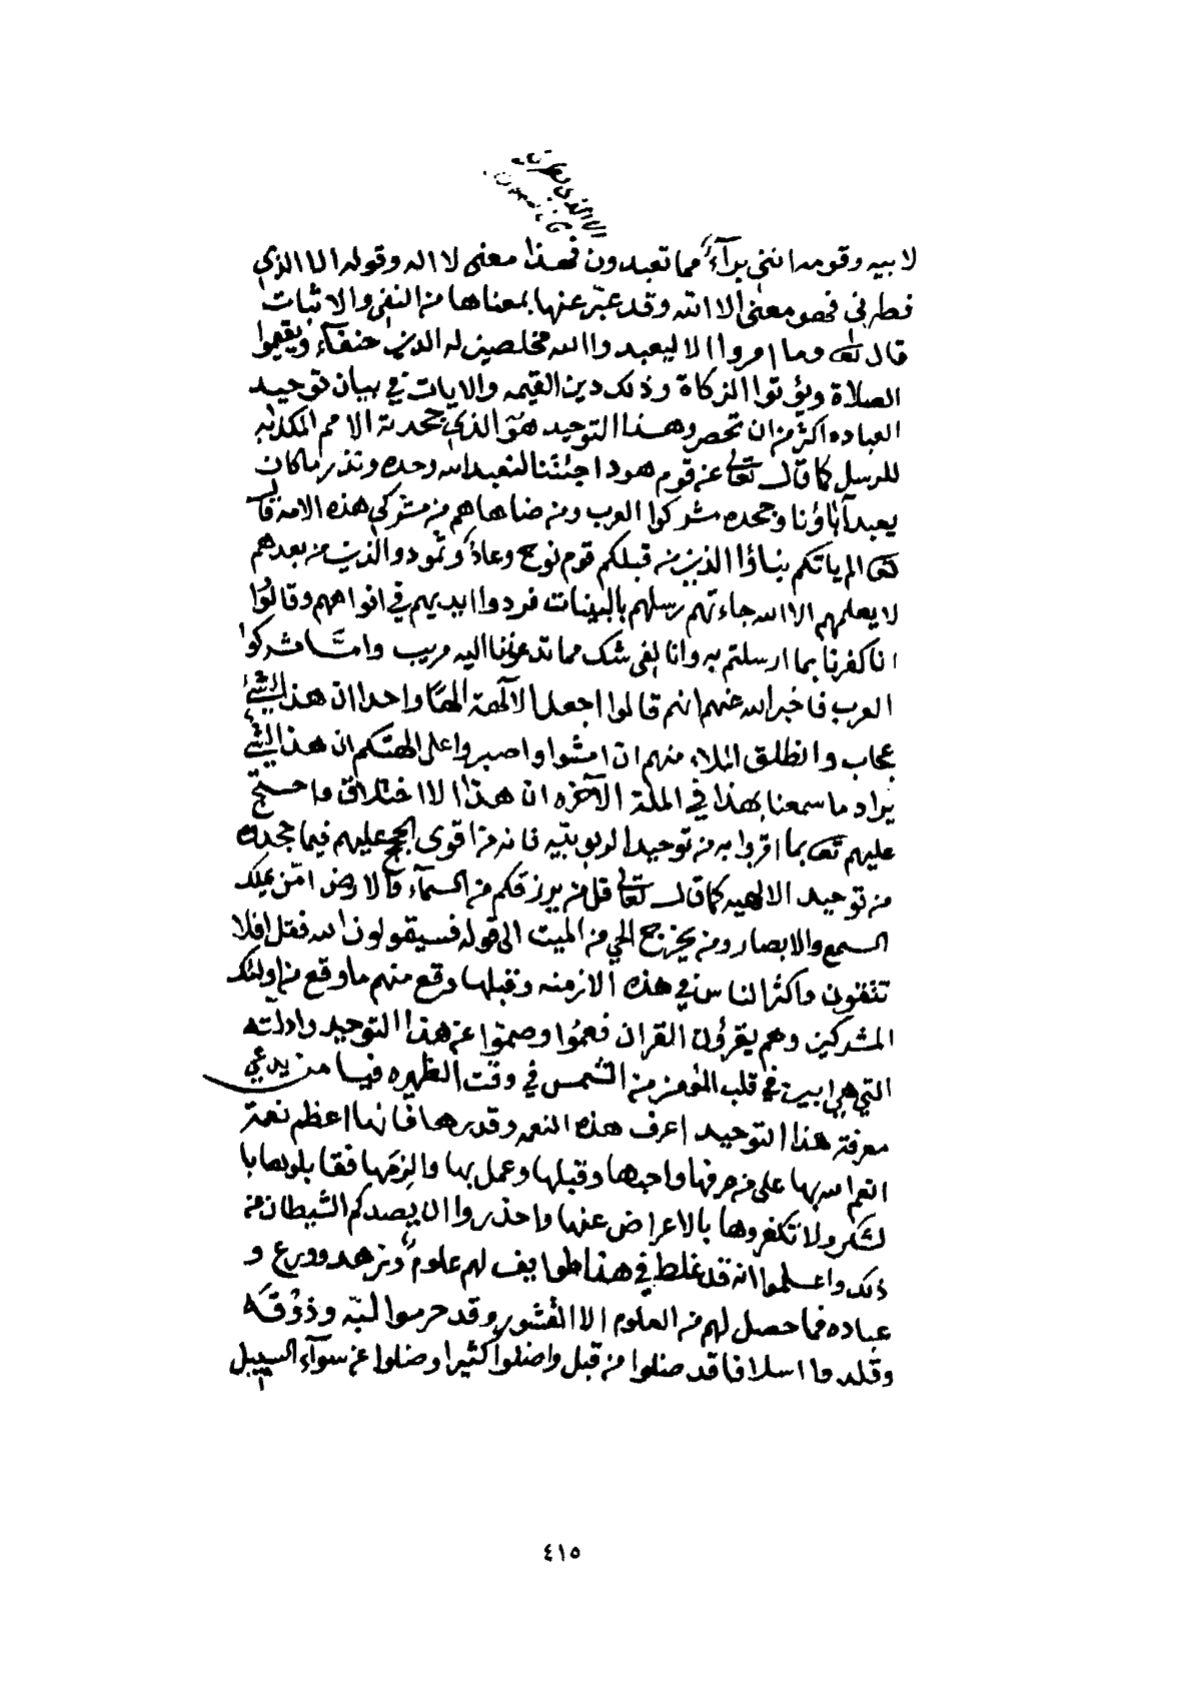 لابيه وقومه انني برآء مما تعبدون فهذا معنى لا اله وقوله الا الذي
فطرني فهو معنى الا الله وقد عبّر عنها بمعناها من النفي والاثبات
قال تعالى وما امروا الا ليعبدوا الله مخلصين له الدين حنفآء ويقيموا
الصلاة ويؤتوا الزكاة وذلك دين القيمه والايات في بيان توحيد
العباده اكثر من ان تحصر وهذا التوحيد هو الذي جحدته الامم المكذبه
للرسل كما قال تعالى عن قوم هود اجئتنا لنعبد الله وحده ونذر ما كان
يعبد آباؤنا وجحده مشركوا العرب ومن ضاهاهم من مشركي هذه الامه قال
تعالى الم ياتكم نباؤا الذين من قبلكم قوم نوح وعاد وثمود والذين من بعدهم
لا يعلمهم الا الله جاءتهم رسلهم بالبينات فردوا ايديهم في افواههم وقالوا
انا كفرنا بما ارسلتم به وانا لفي شك مما تدعوننا اليه مريب وامّا مشركوا
العرب فاخبر الله عنهم انهم قالوا اجعل الآلهة الهًا واحدا ان هذا لشيء
عجاب وانطلق الملاء منهم ان امشوا واصبروا على الهتكم ان هذا لشيء
يراد ما سمعنا بهذا في الملة الآخره ان هذا الا اختلاق واحتج
عليهم تعالى بما اقروا به من توحيد الربوبيّه فانه من اقوى الحجج عليهم فيما جحدوه
من توحيد الالهيه كما قال تعالى قل من يرزقكم من السمآء والارض امّن يملك
السمع والابصار ومن يخرج الحي من الميت الى قوله فسيقولون الله فقل افلا
تتقون واكثر الناس في هذه الازمنه وقبلها وقع منهم ما وقع من اولئك
المشركين وهم يقرؤن القران فعموا وصموا عن هذا التوحيد وادلته
التي هي ابين في قلب المؤمن من الشمس في وقت الظهيره فيا من يدعي
معرفة هذا التوحيد اعرف هذه النعمه وقدرها فانها اعظم نعمة
انعم الله بها على من عرفها واحبها وقبلها وعمل بها والزمها فقابلوها يا
لشكر ولا تكفروها بالاعراض عنها واحذروا ان يصدكم الشيطان عن
ذلك واعلموا انه قد غلط في هذا طوايف لهم علوم وزهد وورع و
عباده فما حصل لهم من العلوم الا القشور وقد حرموا لبّه وذوقه
وقلدوا اسلافا قد ضلوا من قبل واضلوا كثيرا وضلوا عن سوآء السبيل
٤١٥